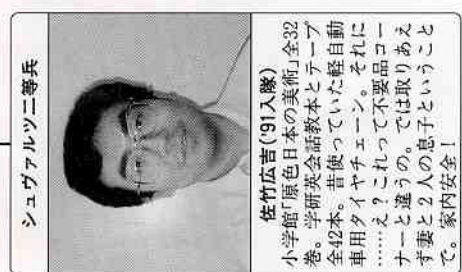 シュヴァルツ二等兵
佐竹広吉('91入隊)
小学館「原色日本の美術」全32
巻。学研英会話教本とテープ
全42本。昔使っていた軽自動
車用タイヤチェーン。それに
……え?これって不要品コー
ナーと違うの。では取りあえ
ず妻と2人の息子ということ
で。家内安全!